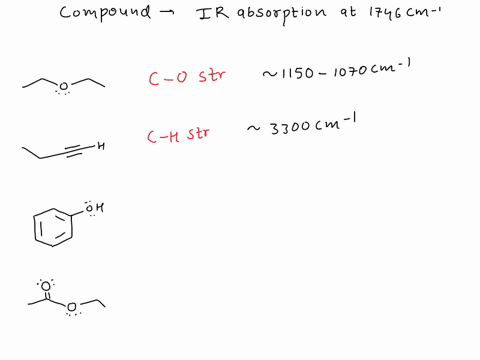 Compound → IR absorption at 1746 cm-1
C-O str ~1150-1070 cm-1
O
C-H str ~ 3300 cm-1
H
OH
O
O